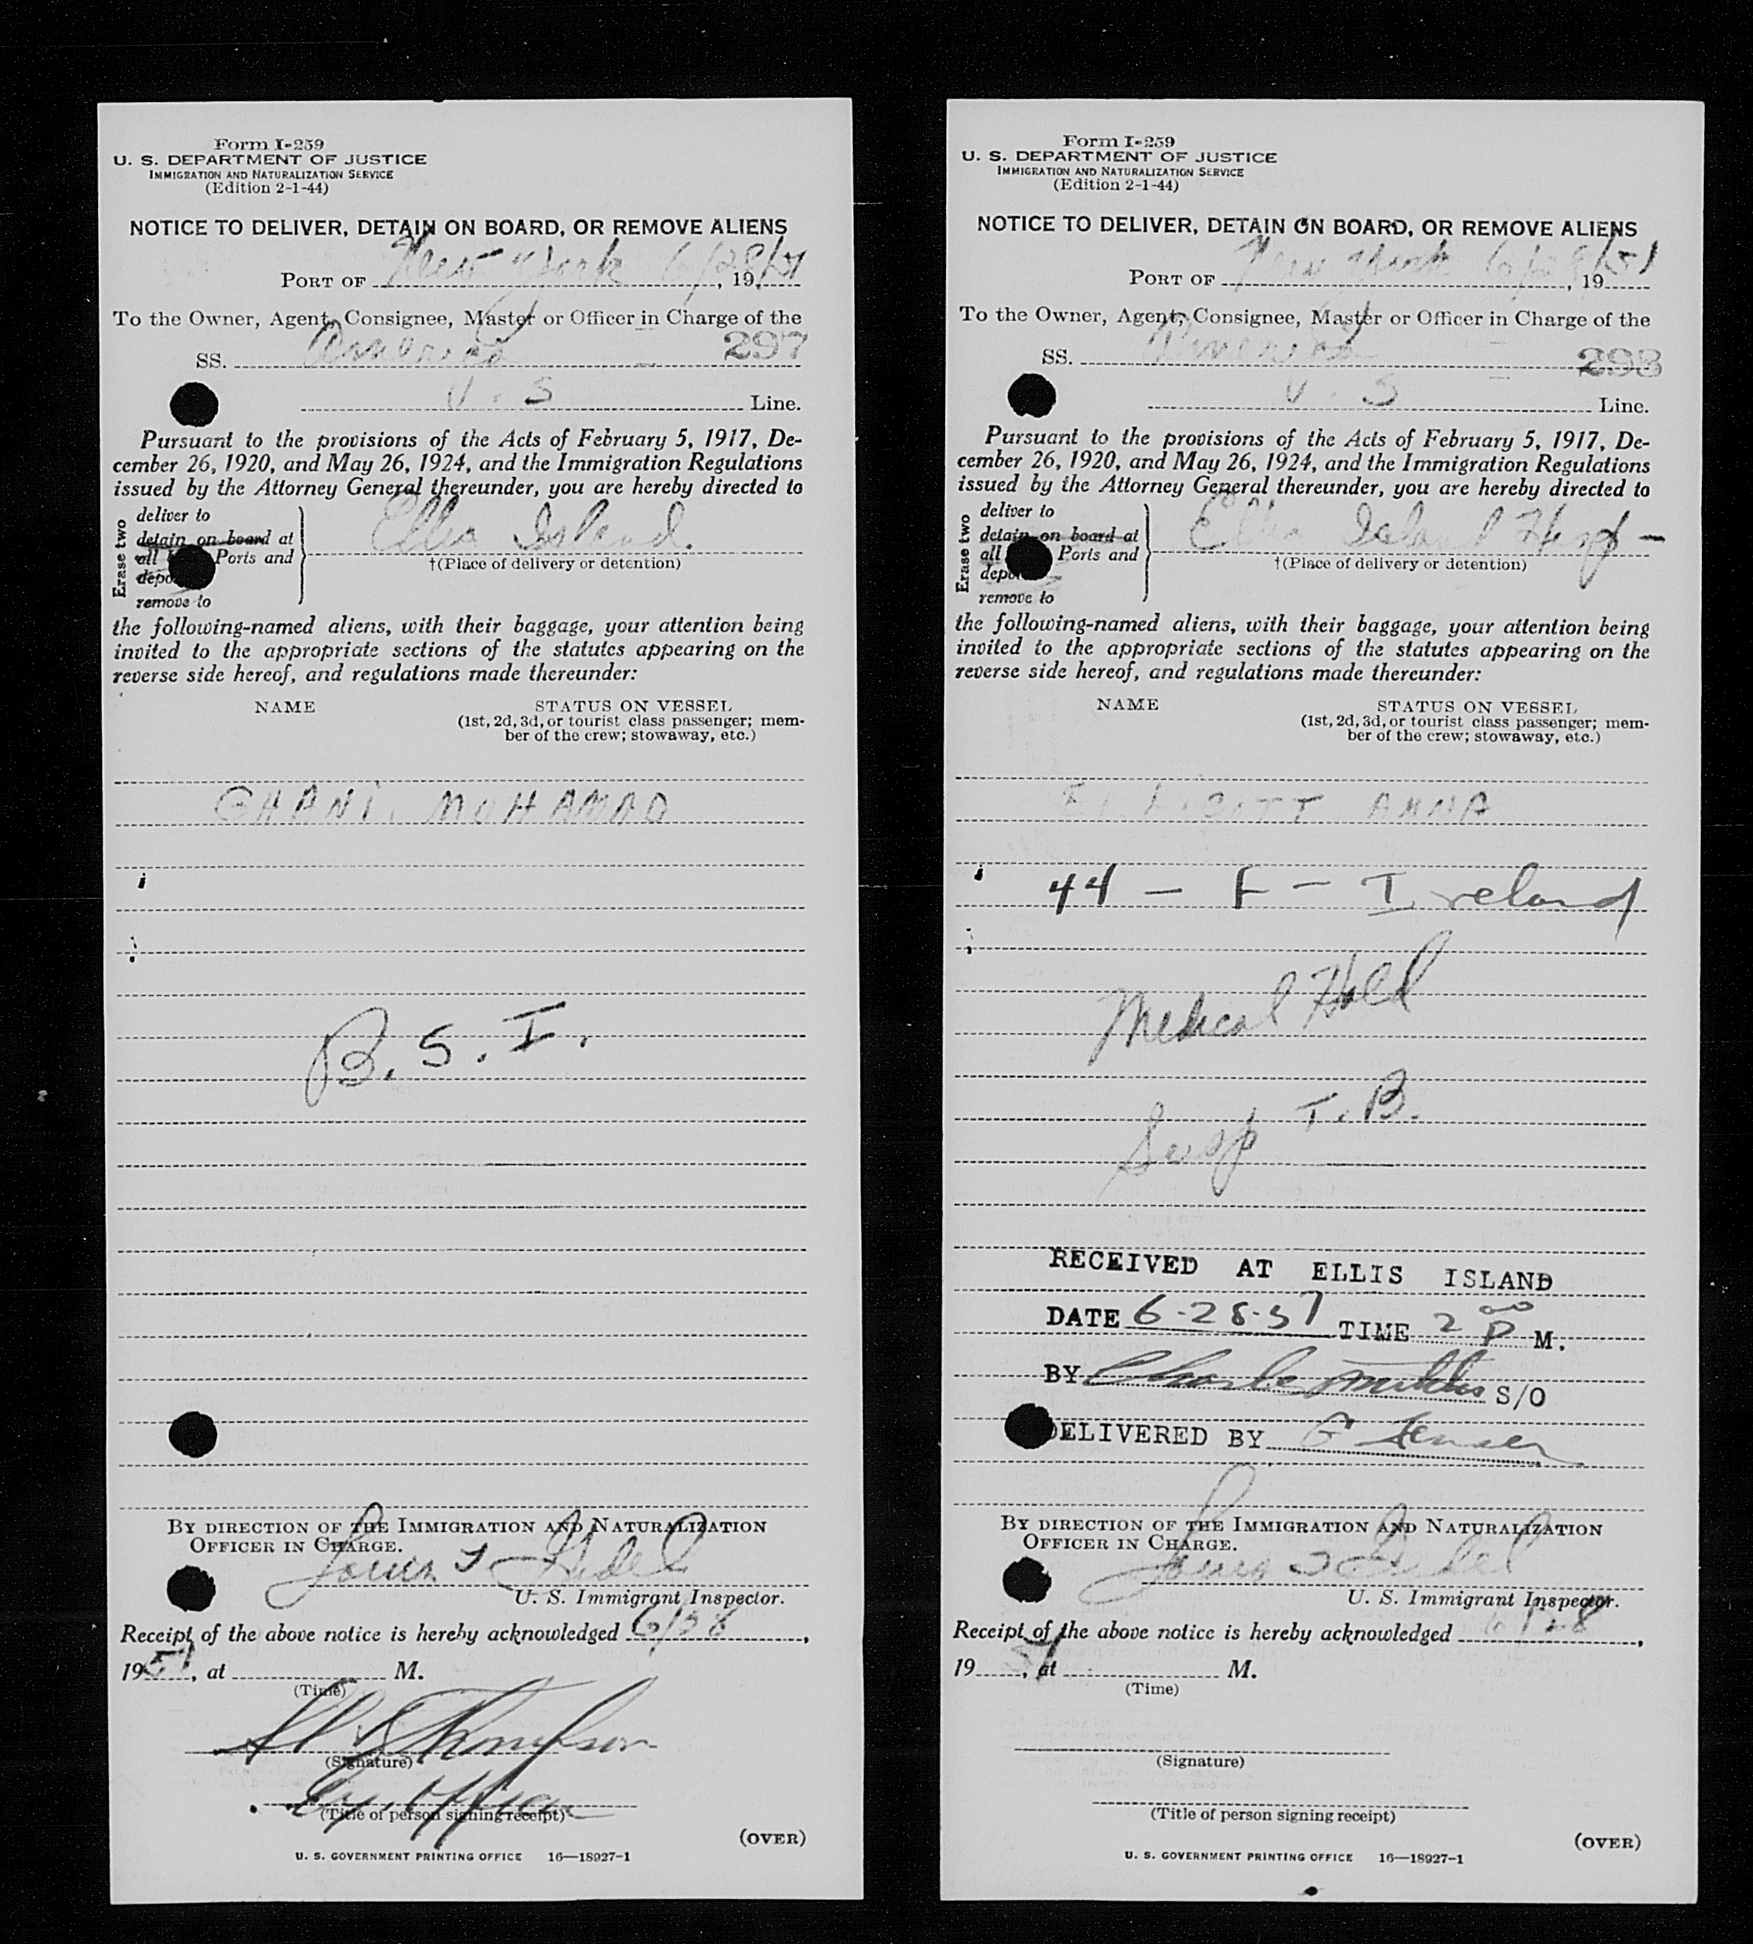 Form I-259
U. S. DEPARTMENT OF JUSTICE
IMMIGRATION AND NATURALIZATION SERVICE
(Edition 2-1-44)
NOTICE TO DELIVER, DETAIN ON BOARD, OR REMOVE ALIENS
PORT OF New York 6/28/51, 19
To the Owner, Agent, Consignee, Master or Officer in Charge of the
SS. America 297
U.S Line.
Pursuant to the provisions of the Acts of February 5, 1917, De-
cember 26, 1920, and May 26, 1924, and the Immigration Regulations
issued by the Attorney General thereunder, you are hereby directed to
Erase two
deliver to
detain on board at
all Ports and
depo
remove to
Ellis Island.
†(Place of delivery or detention)
the following-named aliens, with their baggage, your attention being
invited to the appropriate sections of the statutes appearing on the
reverse side hereof, and regulations made thereunder:
NAME STATUS ON VESSEL
(1st, 2d, 3d, or tourist class passenger; mem-
ber of the crew; stowaway, etc.)
GHANI, MOHAMAD
B. S. I.
BY DIRECTION OF THE IMMIGRATION AND NATURALIZATION
OFFICER IN CHARGE.
U. S. Immigrant Inspector.
Receipt of the above notice is hereby acknowledged 6/28,
1951, at M.
(Time)
Thompson
(Signature)
Ex. Officer
(Title of person signing receipt)
(OVER)
U. S. GOVERNMENT PRINTING OFFICE 16—18927-1
Form I-259
U. S. DEPARTMENT OF JUSTICE
IMMIGRATION AND NATURALIZATION SERVICE
(Edition 2-1-44)
NOTICE TO DELIVER, DETAIN ON BOARD, OR REMOVE ALIENS
PORT OF New York 6/28/51, 19
To the Owner, Agent, Consignee, Master or Officer in Charge of the
SS. America 298
U.S Line.
Pursuant to the provisions of the Acts of February 5, 1917, De-
cember 26, 1920, and May 26, 1924, and the Immigration Regulations
issued by the Attorney General thereunder, you are hereby directed to
Erase two
deliver to
detain on board at
all Ports and
depo
remove to
Ellis Island Hosp -
†(Place of delivery or detention)
the following-named aliens, with their baggage, your attention being
invited to the appropriate sections of the statutes appearing on the
reverse side hereof, and regulations made thereunder:
NAME STATUS ON VESSEL
(1st, 2d, 3d, or tourist class passenger; mem-
ber of the crew; stowaway, etc.)
ANNA
44 - F - Ireland
Medical Hold
Susp T. B.
RECEIVED AT ELLIS ISLAND
DATE 6-28-51 TIME 2 00 P M.
BY S/O
DELIVERED BY G Jensen
BY DIRECTION OF THE IMMIGRATION AND NATURALIZATION
OFFICER IN CHARGE.
U. S. Immigrant Inspector.
Receipt of the above notice is hereby acknowledged 6/28,
19 51, at M.
(Time)
(Signature)
(Title of person signing receipt)
(OVER)
U. S. GOVERNMENT PRINTING OFFICE 16—18927-1